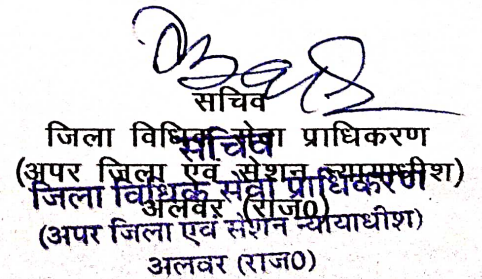 सचिव
जिला विधिक सेवा प्राधिकरण
(अपर जिला एवं सेशन न्यायाधीश)
अलवर (राज0)
सचिव
जिला विधिक सेवा प्राधिकरण
(अपर जिला एवं सेशन न्यायाधीश)
अलवर (राज0)